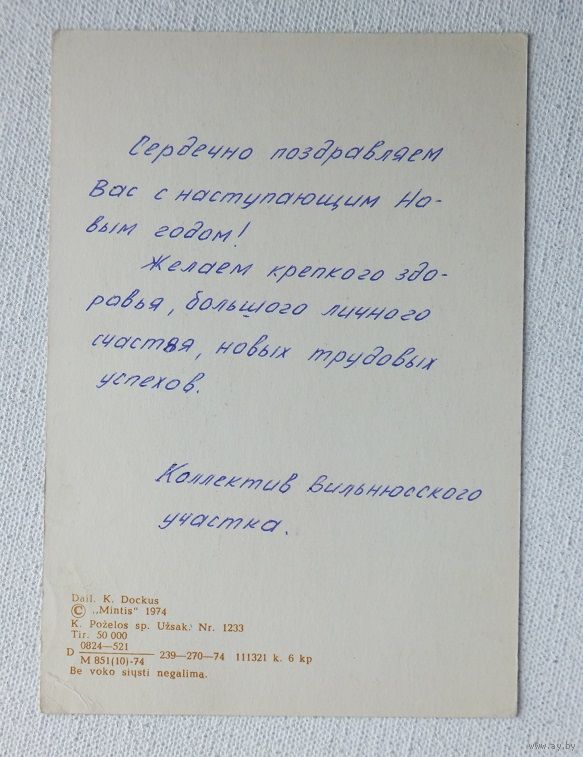 Сердечно поздравляем
Вас с наступающим Но-
вым годом!
Желаем крепкого здо-
ровья, большого личного
счастья, новых трудовых
успехов.
Коллектив Вильнюсского
участка.
Dail. K. Dockus
© „Mintis" 1974
K. Poželos sp. Užsak. Nr. 1233
Tir. 50 000
D 0824—521
M 851(10)-74 239—270—74 111321 k. 6 kp
Be voko siųsti negalima.
www.ay.by